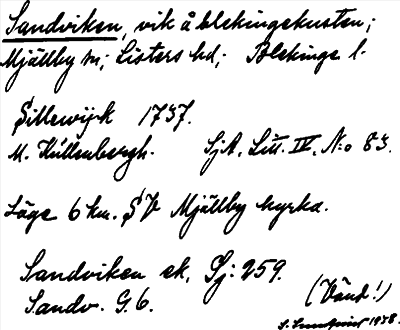 Sandviken, vik å blekingekusten;
Mjällby sn; Listers hd; Blekinge l.
Sillewijk 1737.
M. Hüllenbergh. SjA. Litt. IV. N:o 83.
Läge 6 km. SV Mjällby kyrka.
Sandviken ek. Sj: 259.
Sandv. G. 6. (Vänd!)
1938.